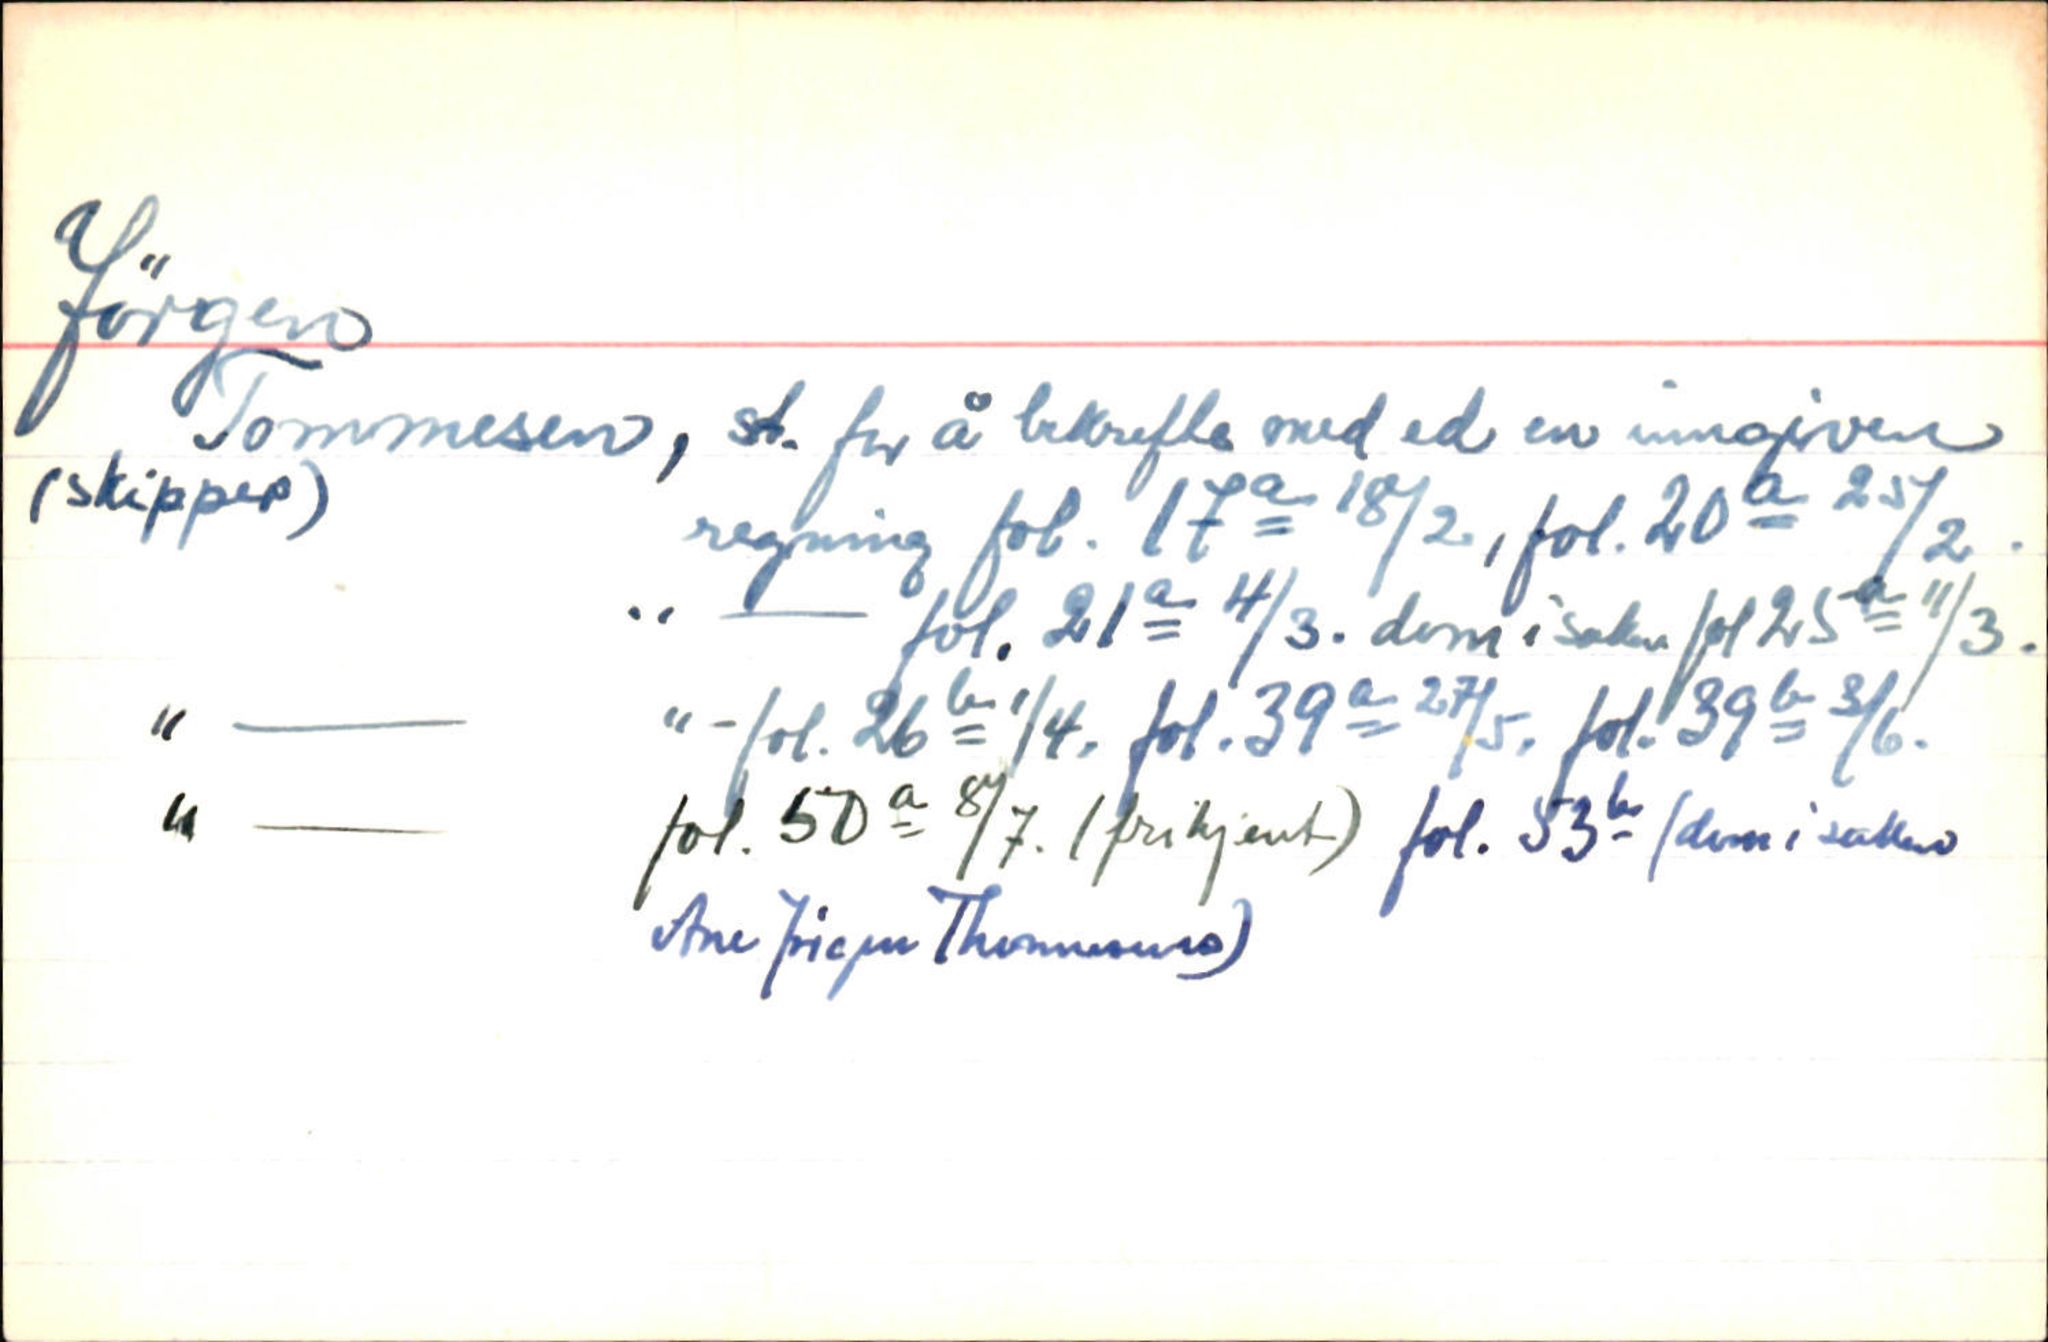 Jörgen
Tommesen, st. for å bekrefte med ed en inngiven
(skipper)
regning fol. 17a 18/2, fol. 20a 25/2.
" — fol. 21a 4/3. dom i saken fol 25a 11/3.
" — " - fol. 26b 1/4. fol. 39a 27/5. fol. 39b 3/6.
" — fol. 50a 8/7. (frikjent) fol. 53b (dom i saken
Ane Thommesens)